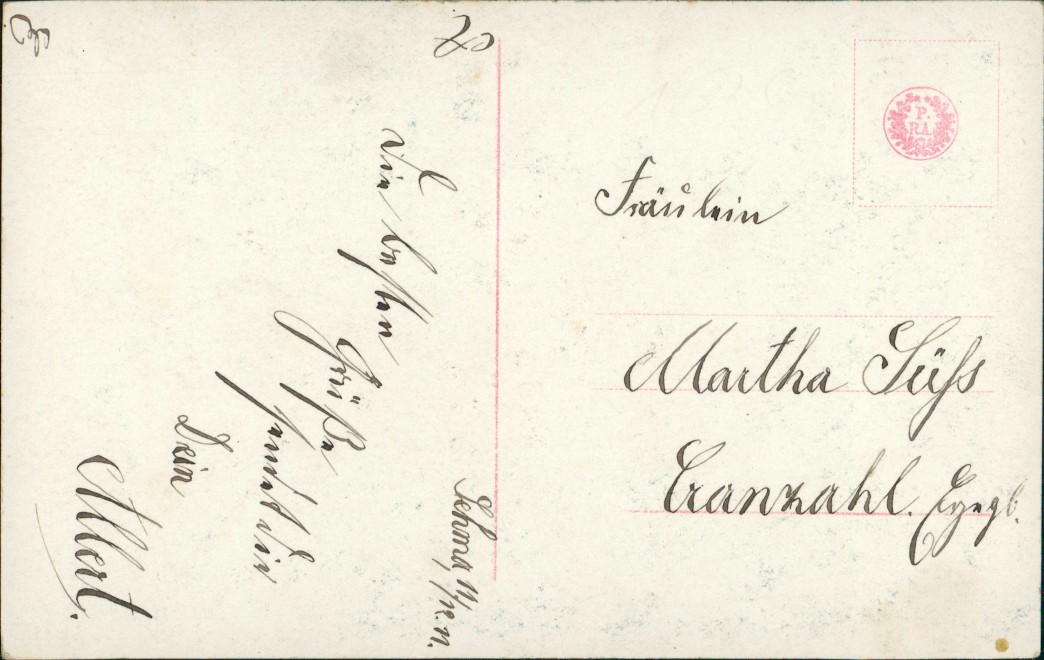 Sehma, 11/12. 11.
Die besten
Grüße
sendet Dir
Dein
Albert.
P.
R.A.
Fräulein
Martha Süß
Cranzahl. Erzgb.